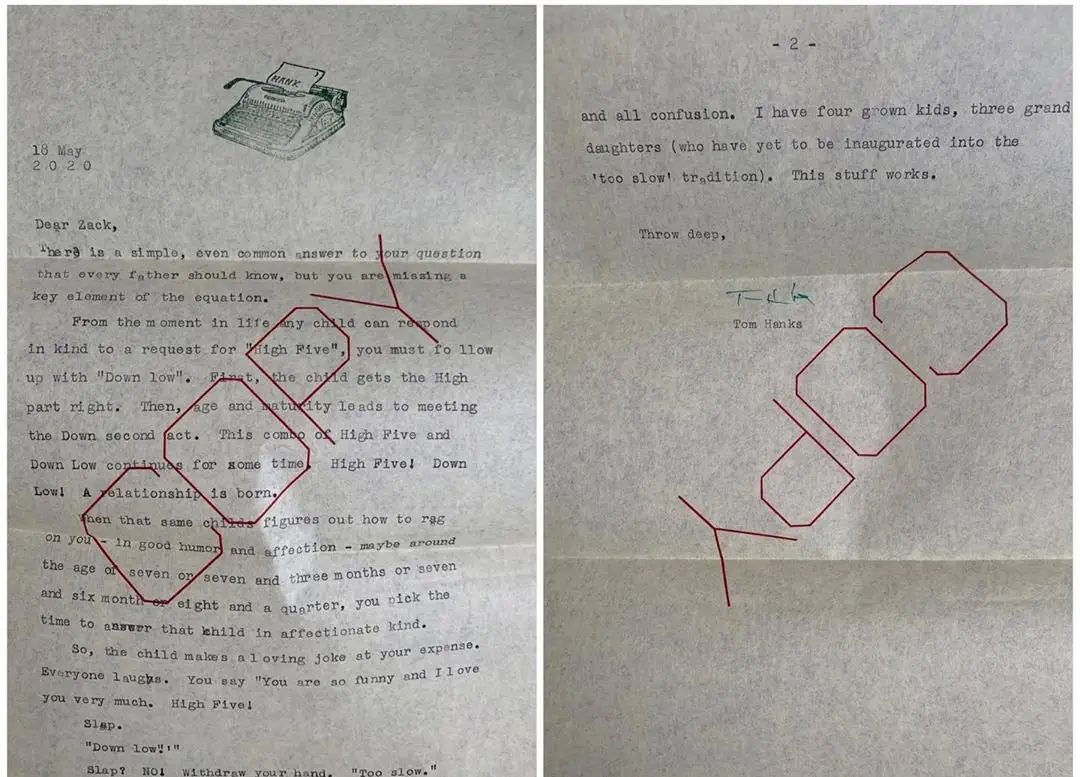 HANX
18 May
2 0 2 0
Dear Zack,
There is a simple, even common answer to your question
that every father should know, but you are missing a
key element of the equation.
From the m oment in life any child can respond
in kind to a request for "High Five", you must fo llow
up with "Down low". First, the child gets the High
part right. Then, age and maturity leads to meeting
the Down second act. This combo of High Five and
Down Low continues for some time. High Five! Down
Low! A relationship is born.
When that same childs figures out how to rag
on you - in good humor and affection - maybe around
the age of seven or seven and three months or seven
and six month or eight and a quarter, you pick the
time to answer that child in affectionate kind.
So, the child makes a loving joke at your expense.
Everyone laughs. You say "You are so funny and I love
you very much. High Five!
Slap.
"Down low!'"
Slap? NO! Withdraw your hand. "Too slow."
COPY
- 2 -
and all confusion. I have four grown kids, three grand
daughters (who have yet to be inaugurated into the
'too slow' tradition). This stuff works.
Throw deep,
Tom Hanks
COPY